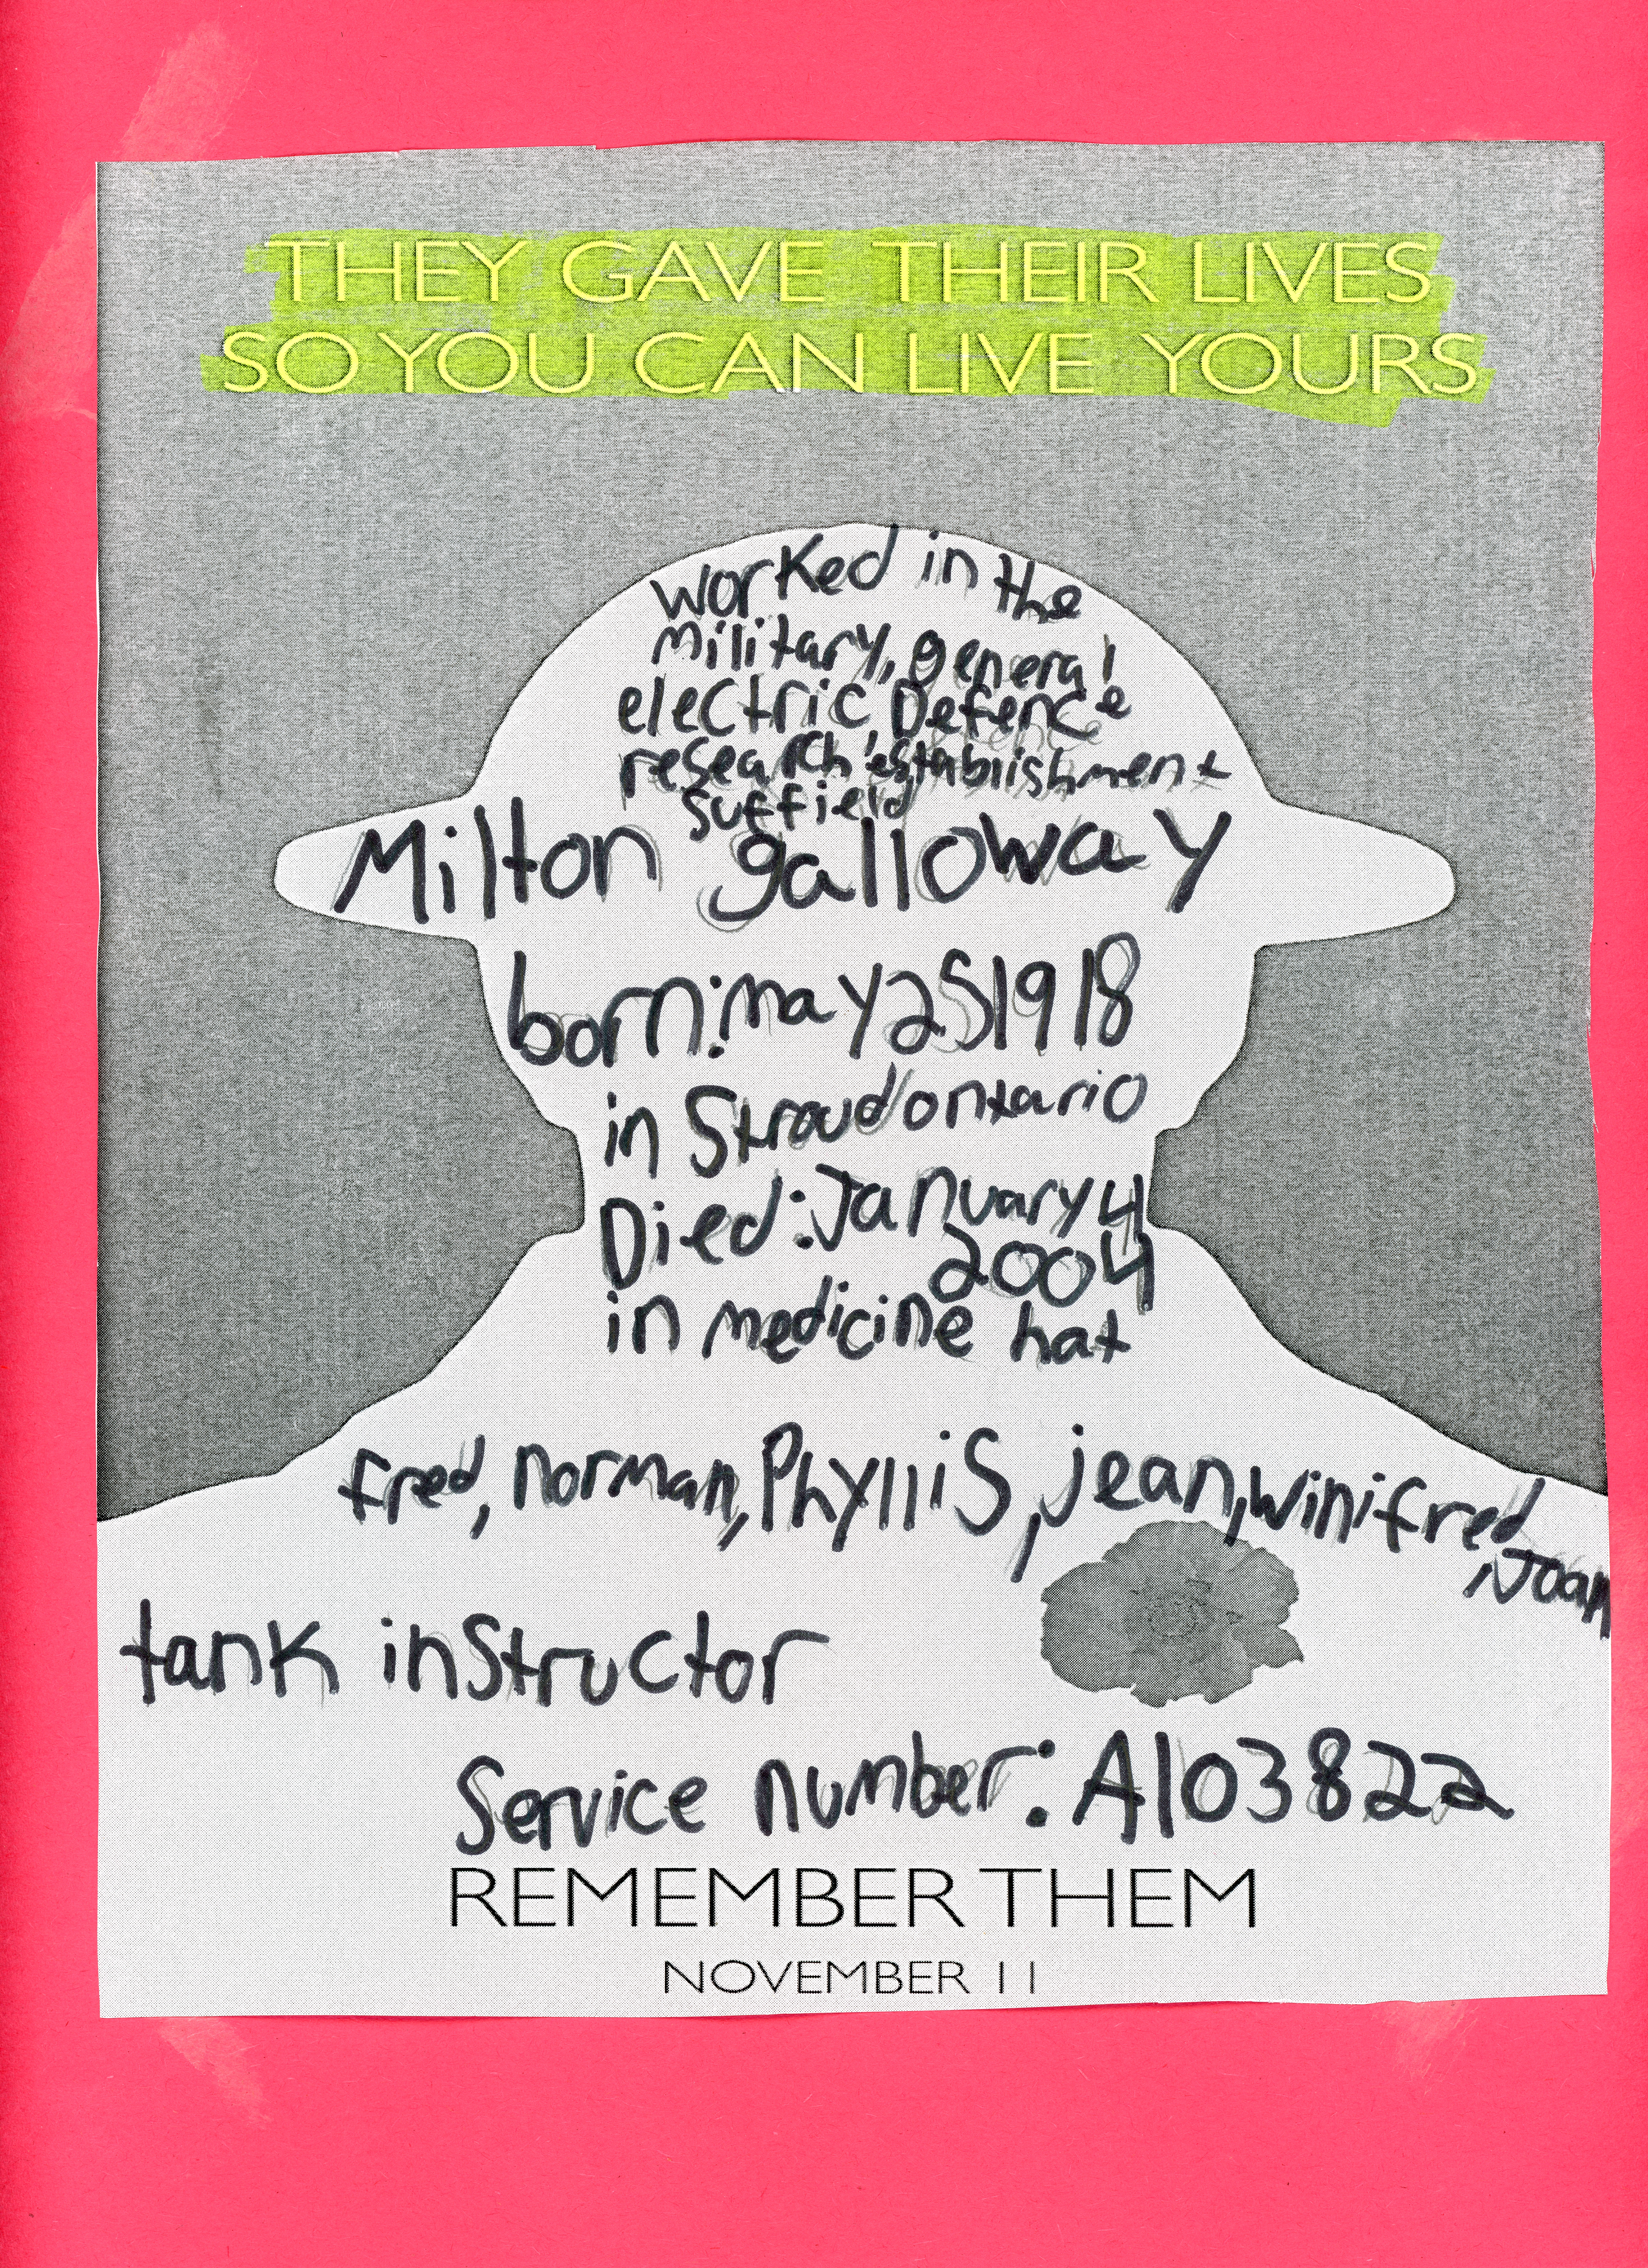 THEY GAVE THEIR LIVES
SO YOU CAN LIVE YOURS
worked in the
military, general
electric Defence
research establishment
suffield
Milton galloway
born: may 25 1918
in Stroud ontario
Died: January 4
2004
in medicine hat
fred, norman, Phyllis, jean, winifred
, Joan
tank instructor
Service number: A103822
REMEMBER THEM
NOVEMBER 11